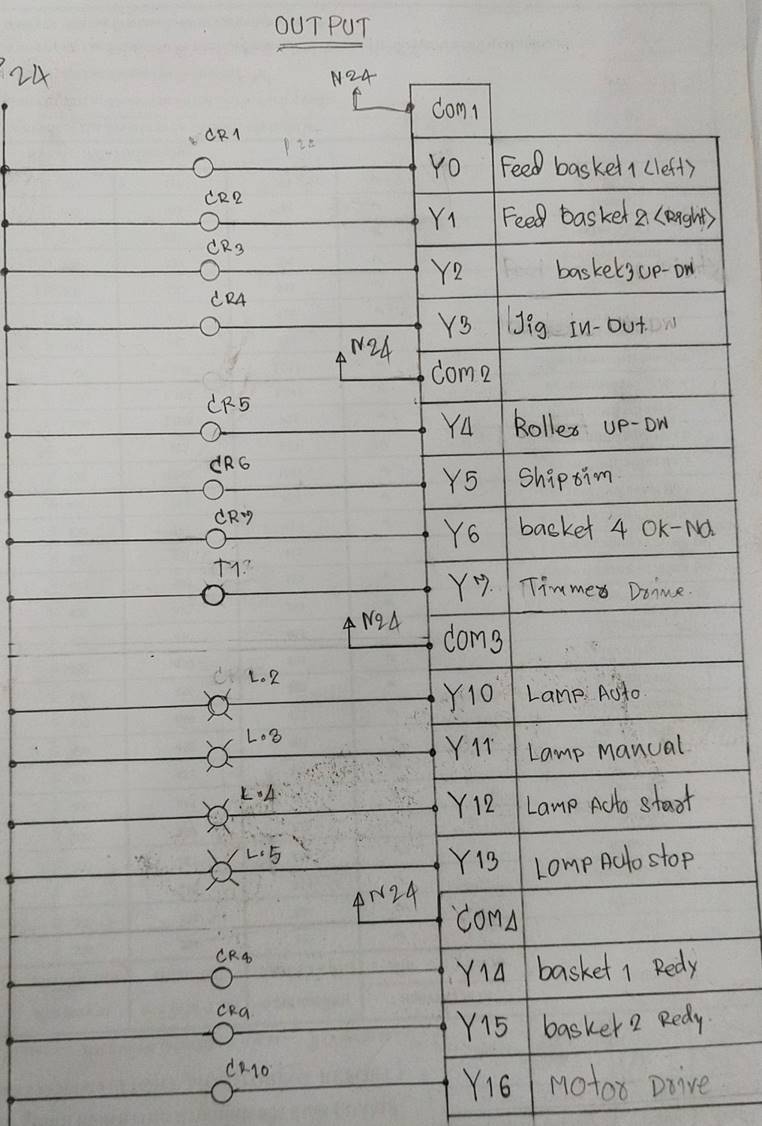 OUTPUT
P24
N24
COM1
CR1
Y0 Feed basket 1 <left>
CR2
Y1 Feed basket 2 <Right>
CR3
Y2 basket3 UP-DW
CR4
Y3 Jig IN-OUT
N24
COM2
CR5
Y4 Roller UP-DW
CR6
Y5 Shiprim
CR7
Y6 basket 4 OK-NG
T1
Y7 Timmer Drime
N24
COM3
L.2
Y10 Lamp Auto
L.3
Y11 Lamp Manual
L.4
Y12 Lamp Auto Start
L.5
Y13 Lomp Auto stop
N24
COM4
CR8
Y14 basket 1 Redy
CR9
Y15 basket 2 Redy.
CR10
Y16 Motor Drive